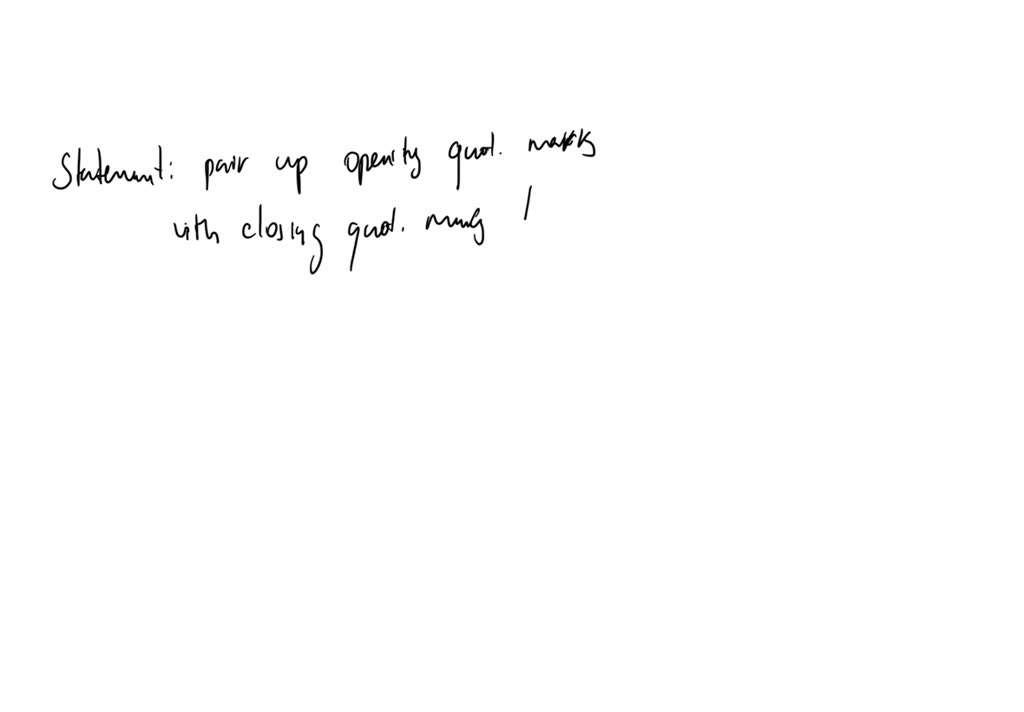 Statement: pair up opening quot. marks
with closing quot. marks /